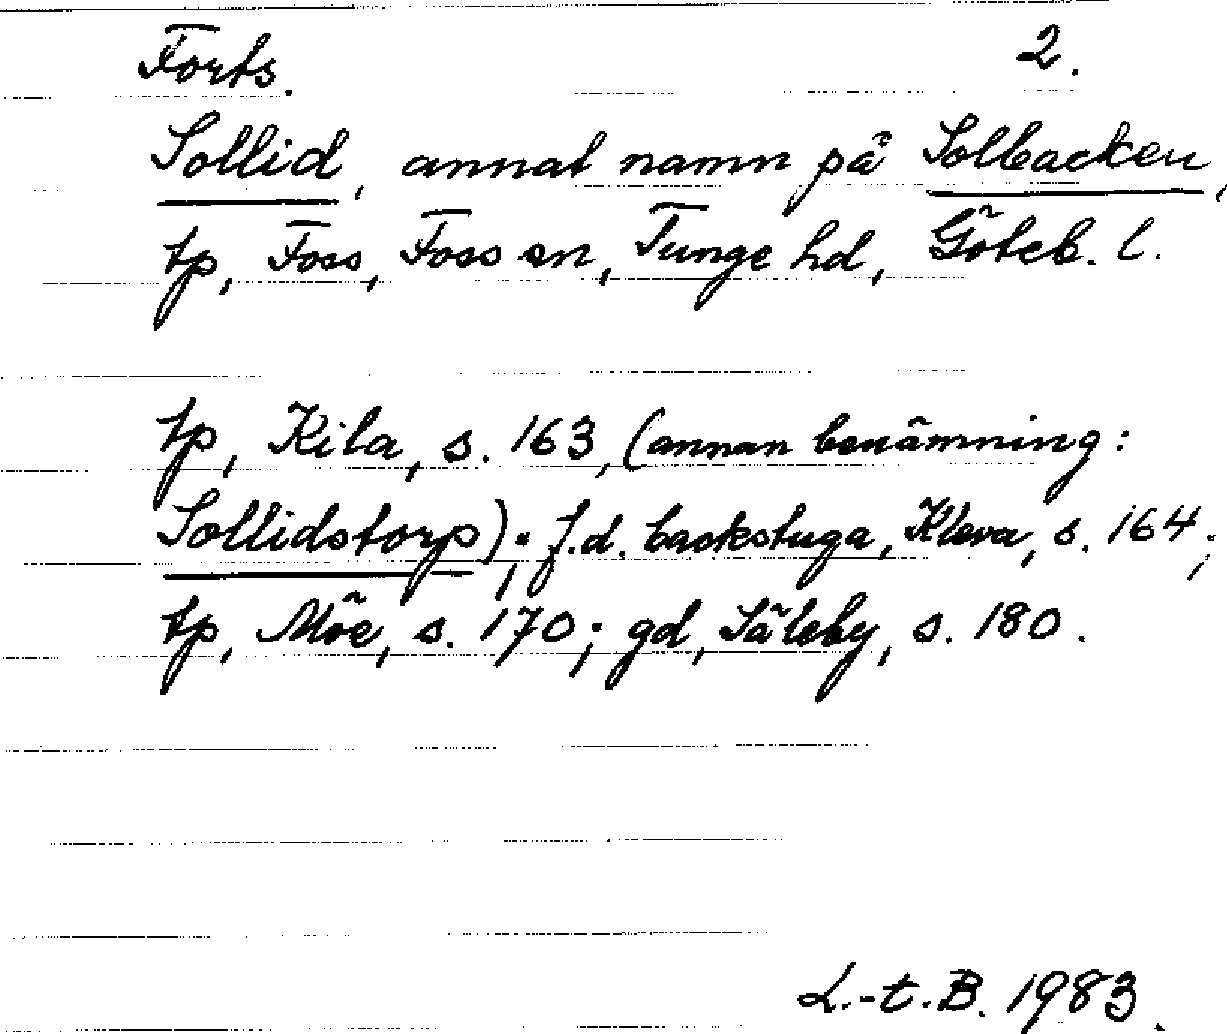 Forts. 2.
Sollid, annat namn på Solbacken,
tp, Foss, Foss sn, Tunge hd, Göteb. l.
tp, Kila, s. 163, (annan benämning:
Sollidstorp); f.d. backstuga, Kleva, s. 164;
tp, Möe, s. 170; gd, Säleby, s. 180.
L.-t. B. 1983.